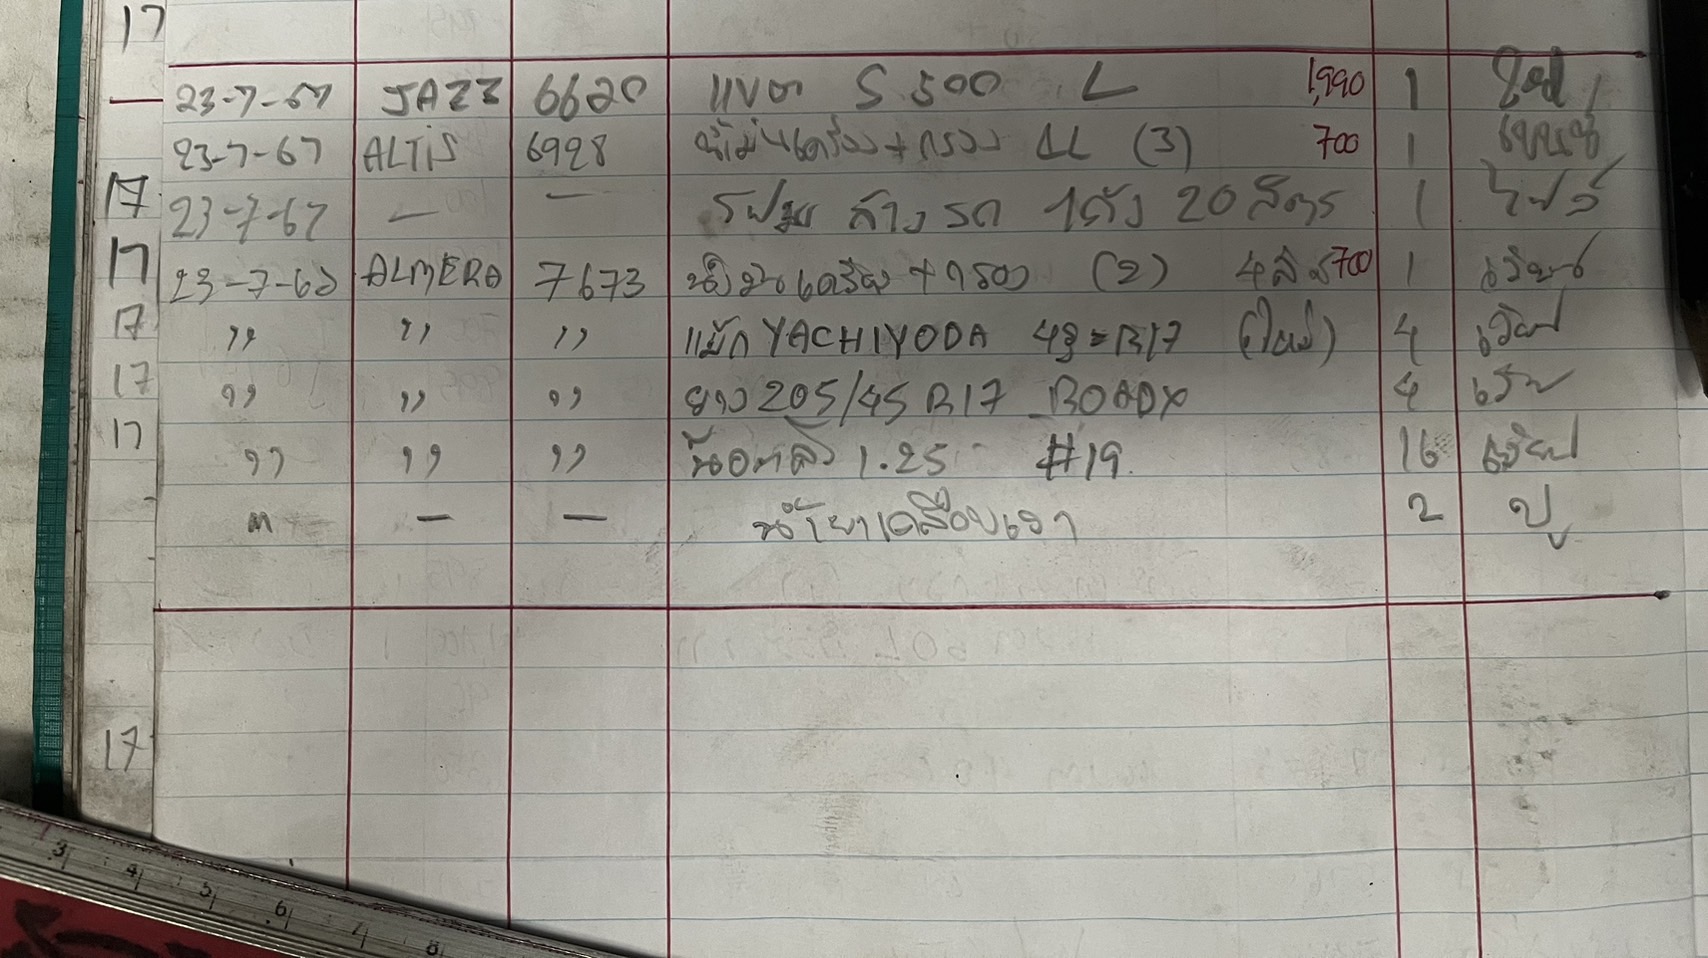 17
23-7-67 JAZZ 6620 แบต S 500 L 1,990 1
23-7-67 ALTIS 6928 น้ำมันเครื่อง + กรอง 4L (3) 700 1
17 23-7-67 — — โฟมล้างรถ 1ถัง 20 ลิตร 1
17 23-7-67 ALMERA 7673 น้ำมันเครื่อง + กรอง (2) 4ลิตร 700 1
17 ,, ,, ,, แม็ก YACHIYODA 4รู = R17 (ใหม่) 4
17 ,, ,, ,, ยาง 205/45 R17 ROADX 4
17 ,, ,, ,, น็อตล้อ 1.25 #19 16
— — น้ำยาเคลือบเงา 2 ปู
17
3 4 5 6 7 8